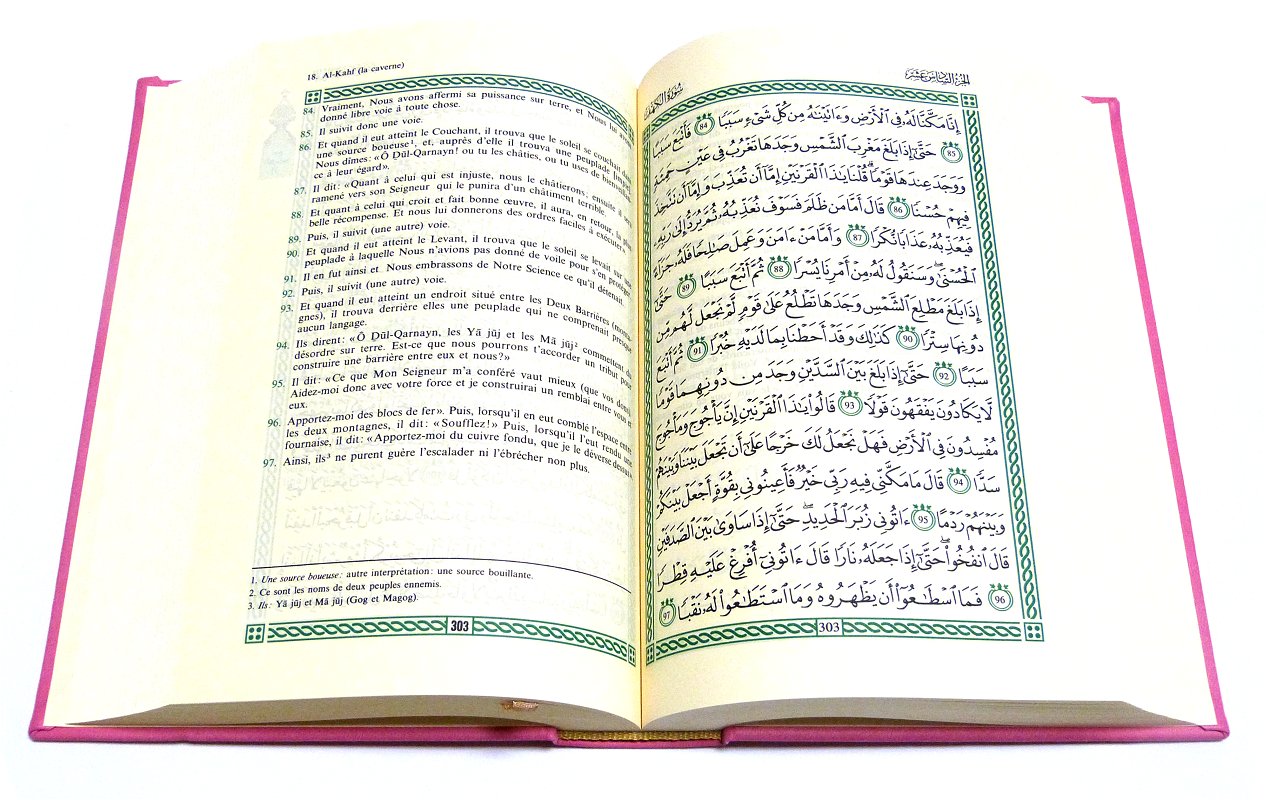 18. Al-Kahf (la caverne)
84. Vraiment, Nous avons affermi sa puissance sur terre, et Nous lui avons
donné libre voie à toute chose.
85. Il suivit donc une voie.
86. Et quand il eut atteint le Couchant, il trouva que le soleil se couchait dans
une source boueuse¹, et, auprès d'elle il trouva une peuplade
Nous dîmes: «Ô Dūl-Qarnayn! ou tu les châties, ou tu uses de bienveillance
ce à leur égard».
87. Il dit: «Quant à celui qui est injuste, nous le châtierons; ensuite il sera
ramené vers son Seigneur qui le punira d'un châtiment terrible.
88. Et quant à celui qui croit et fait bonne œuvre, il aura, en retour, la plus
belle récompense. Et nous lui donnerons des ordres faciles à exécuter».
89. Puis, il suivit (une autre) voie.
90. Et quand il eut atteint le Levant, il trouva que le soleil se levait sur une
peuplade à laquelle Nous n'avions pas donné de voile pour s'en protéger.
91. Il en fut ainsi et Nous embrassons de Notre Science ce qu'il détenait.
92. Puis, il suivit (une autre) voie.
93. Et quand il eut atteint un endroit situé entre les Deux Barrières (monta-
gnes), il trouva derrière elles une peuplade qui ne comprenait presque
aucun langage.
94. Ils dirent: «Ô Dūl-Qarnayn, les Yā jūj et les Mā jūj² commettent du
désordre sur terre. Est-ce que nous pourrons t'accorder un tribut pour
construire une barrière entre eux et nous?»
95. Il dit: «Ce que Mon Seigneur m'a conféré vaut mieux (que vos dons).
Aidez-moi donc avec votre force et je construirai un remblai entre vous et
eux.
96. Apportez-moi des blocs de fer». Puis, lorsqu'il en eut comblé l'espace entre
les deux montagnes, il dit: «Soufflez!» Puis, lorsqu'il l'eut rendu une
fournaise, il dit: «Apportez-moi du cuivre fondu, que je le déverse dessus».
97. Ainsi, ils³ ne purent guère l'escalader ni l'ébrécher non plus.
1. Une source boueuse: autre interprétation: une source bouillante.
2. Ce sont les noms de deux peuples ennemis.
3. Ils: Yā jūj et Mā jūj (Gog et Magog).
303
سُورَةُ الكَهْف
الجزء السادس عشر
إِنَّا مَكَّنَّا لَهُۥ فِى ٱلْأَرْضِ وَءَاتَيْنَٰهُ مِن كُلِّ شَىْءٍ سَبَبًا 84 فَأَتْبَعَ سَبَبًا
85 حَتَّىٰٓ إِذَا بَلَغَ مَغْرِبَ ٱلشَّمْسِ وَجَدَهَا تَغْرُبُ فِى عَيْنٍ حَمِئَةٍ
وَوَجَدَ عِندَهَا قَوْمًا ۗ قُلْنَا يَٰذَا ٱلْقَرْنَيْنِ إِمَّآ أَن تُعَذِّبَ وَإِمَّآ أَن تَتَّخِذَ
فِيهِمْ حُسْنًا 86 قَالَ أَمَّا مَن ظَلَمَ فَسَوْفَ نُعَذِّبُهُۥ ثُمَّ يُرَدُّ إِلَىٰ رَبِّهِۦ
فَيُعَذِّبُهُۥ عَذَابًا نُّكْرًا 87 وَأَمَّا مَنْ ءَامَنَ وَعَمِلَ صَٰلِحًا فَلَهُۥ جَزَآءً
ٱلْحُسْنَىٰ ۖ وَسَنَقُولُ لَهُۥ مِنْ أَمْرِنَا يُسْرًا 88 ثُمَّ أَتْبَعَ سَبَبًا 89 حَتَّىٰٓ
إِذَا بَلَغَ مَطْلِعَ ٱلشَّمْسِ وَجَدَهَا تَطْلُعُ عَلَىٰ قَوْمٍ لَّمْ نَجْعَل لَّهُم مِّن
دُونِهَا سِتْرًا 90 كَذَٰلِكَ وَقَدْ أَحَطْنَا بِمَا لَدَيْهِ خُبْرًا 91 ثُمَّ أَتْبَعَ
سَبَبًا 92 حَتَّىٰٓ إِذَا بَلَغَ بَيْنَ ٱلسَّدَّيْنِ وَجَدَ مِن دُونِهِمَا قَوْمًا
لَّا يَكَادُونَ يَفْقَهُونَ قَوْلًا 93 قَالُوا۟ يَٰذَا ٱلْقَرْنَيْنِ إِنَّ يَأْجُوجَ وَمَأْجُوجَ
مُفْسِدُونَ فِى ٱلْأَرْضِ فَهَلْ نَجْعَلُ لَكَ خَرْجًا عَلَىٰٓ أَن تَجْعَلَ بَيْنَنَا وَبَيْنَهُمْ
سَدًّا 94 قَالَ مَا مَكَّنِّى فِيهِ رَبِّى خَيْرٌ فَأَعِينُونِى بِقُوَّةٍ أَجْعَلْ بَيْنَكُمْ
وَبَيْنَهُمْ رَدْمًا 95 ءَاتُونِى زُبَرَ ٱلْحَدِيدِ ۖ حَتَّىٰٓ إِذَا سَاوَىٰ بَيْنَ ٱلصَّدَفَيْنِ
قَالَ ٱنفُخُوا۟ ۖ حَتَّىٰٓ إِذَا جَعَلَهُۥ نَارًا قَالَ ءَاتُونِىٓ أُفْرِغْ عَلَيْهِ قِطْرًا
96 فَمَا ٱسْطَٰعُوٓا۟ أَن يَظْهَرُوهُ وَمَا ٱسْتَطَٰعُوا۟ لَهُۥ نَقْبًا 97
303